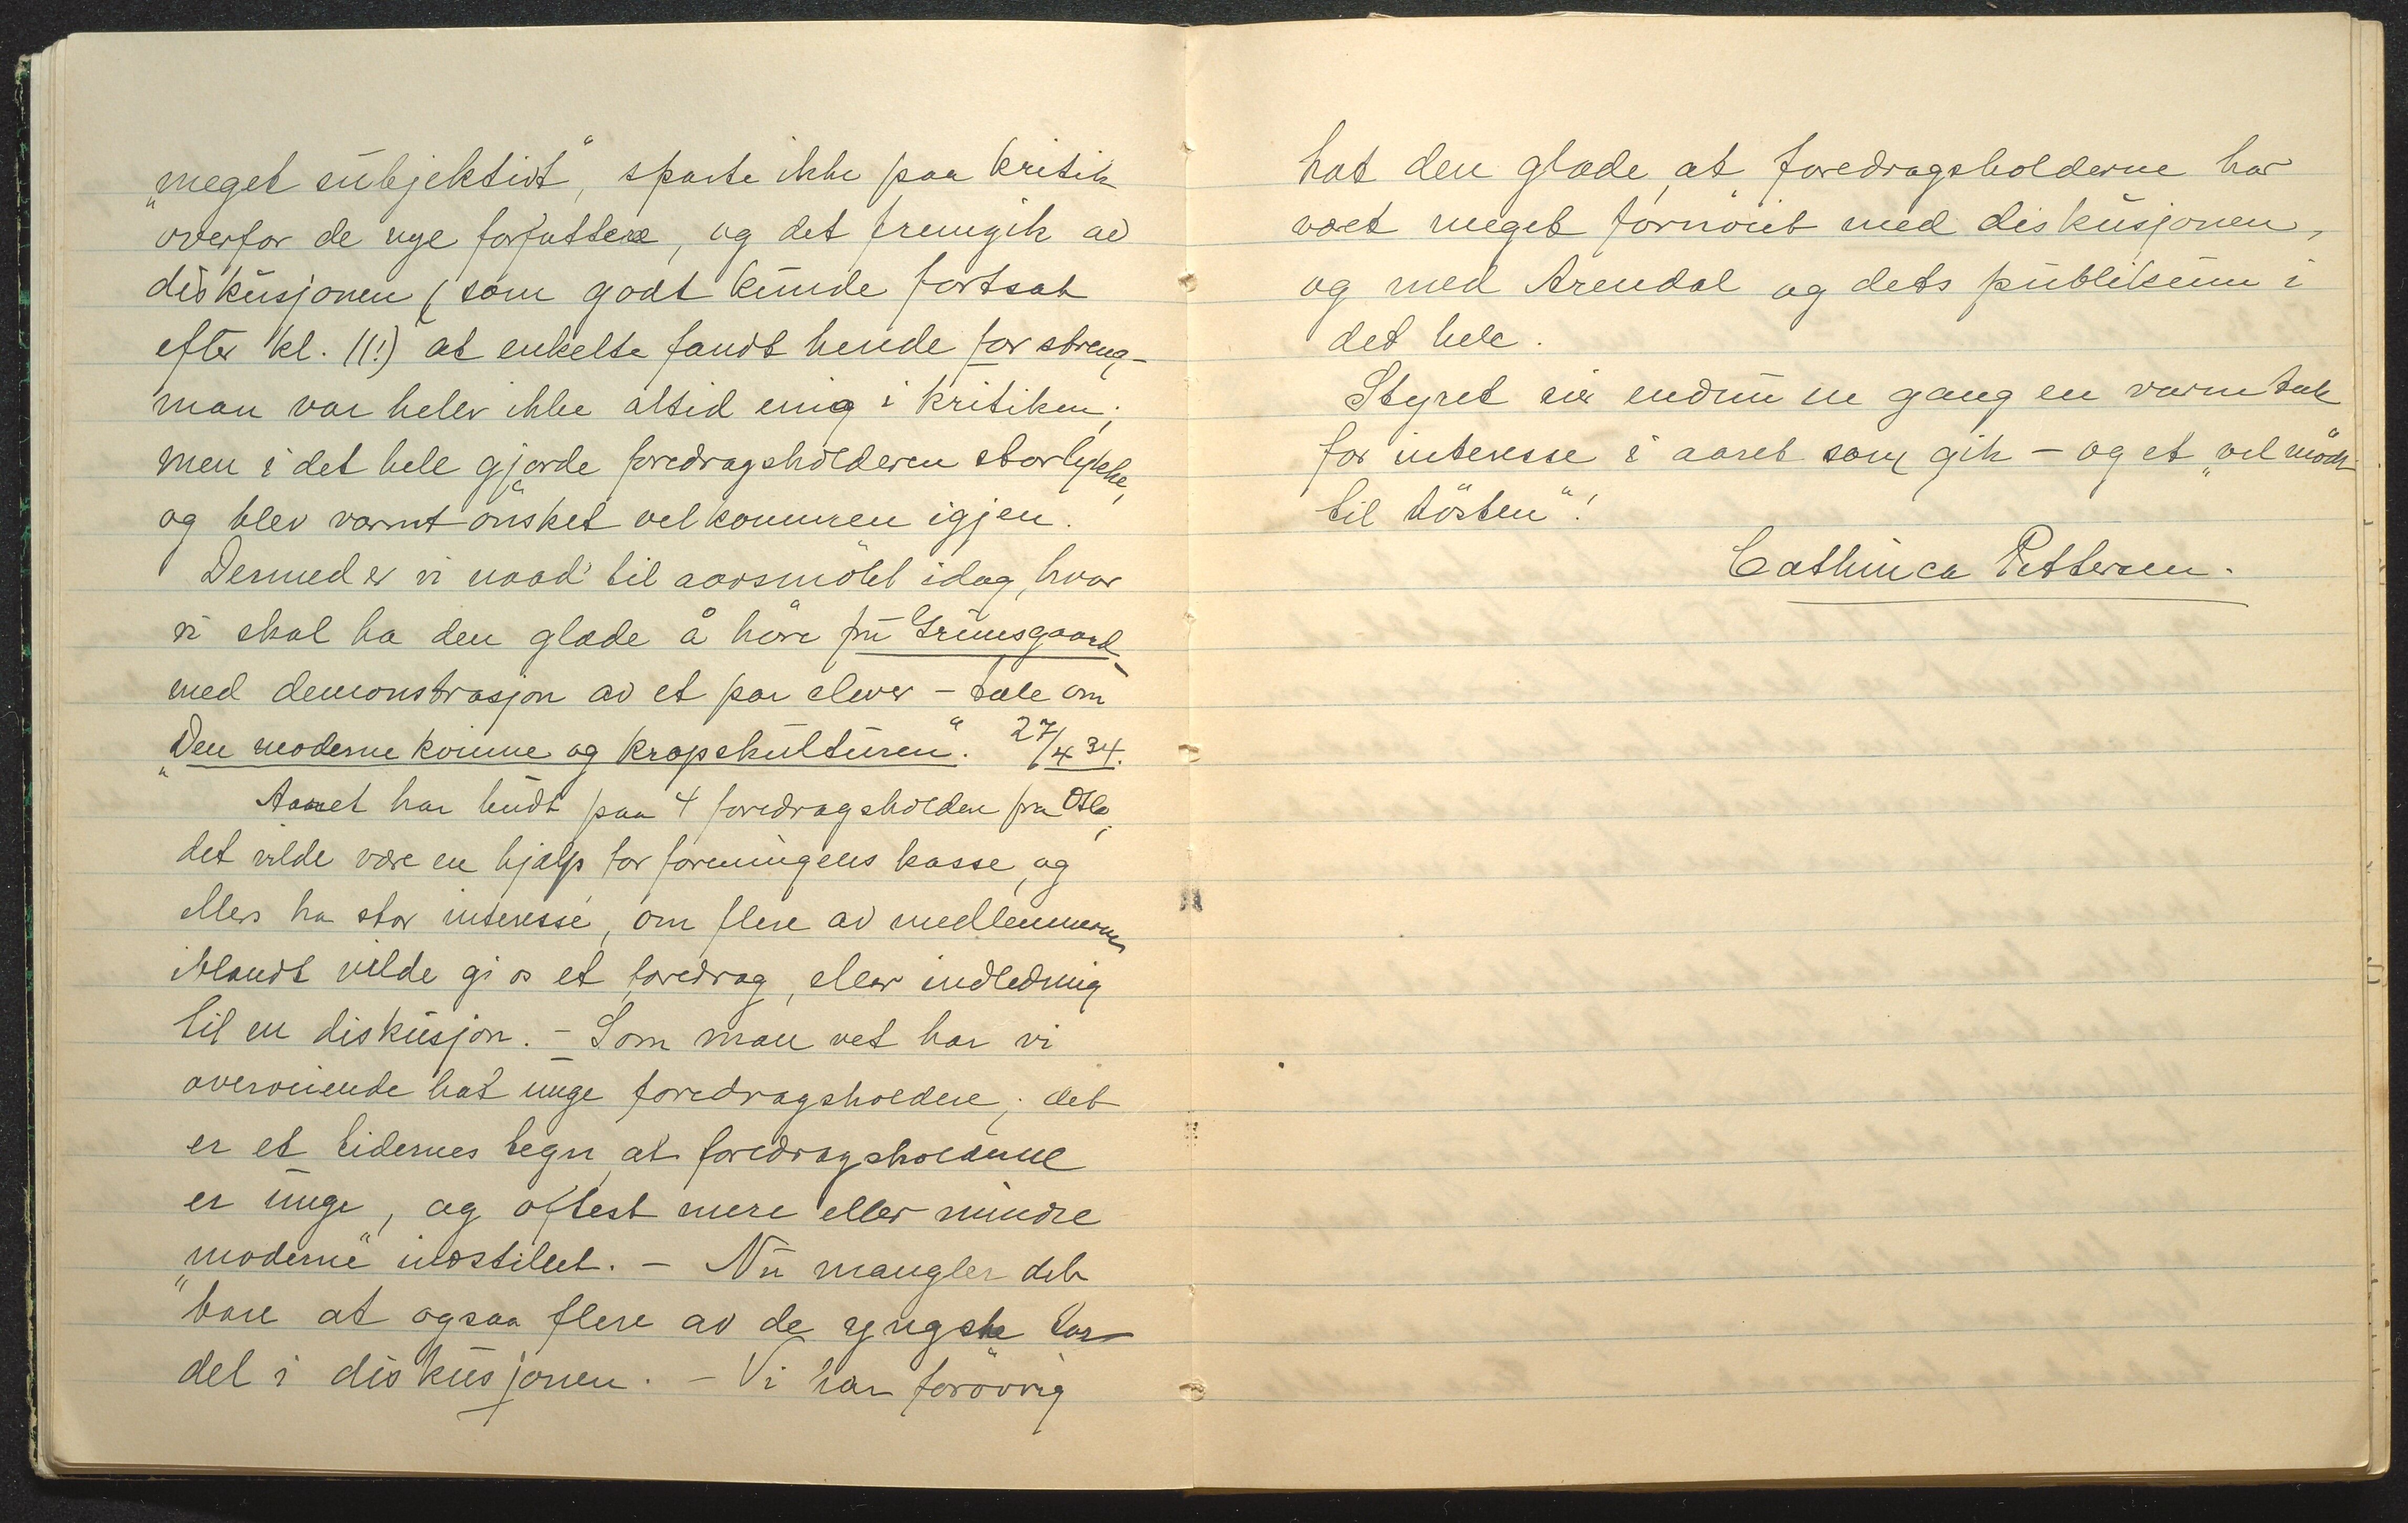 „meget subjektivt“, sparte ikke paa kritik
overfor de nye forfattere, og det fremgik av
diskusjonen (som godt kunde fortsat
efter kl. 11!) at enkelte fandt hende for streng –
man var heler ikke altid enig i kritiken;
men i det hele gjorde foredragsholderen stor lykke,
og blev varmt ønsket velkommen igjen.
Dermed er vi naad til aarsmötet idag, hvor
vi skal ha den glæde å höre fru Grimsgaard –
med demonstrasjon av et par elever – tale om
„Den moderne kvinne og kropskulturen“. 27/4 34.
Aaret har budt paa 4 foredragsholdere fra Oslo;
det vilde være en hjælp for foreningens kasse, og
ellers ha stor interesse, om flere av medlemmerne
iblandt vilde gi os et foredrag, eller indledning
til en diskusjon. – Som man vet har vi
overveiende hat unge foredragsholdere; det
er et tidernes tegn at foredragsholderne
er unge, og oftest mere eller mindre
„moderne“ indstillet. – Nu mangler det
bare at ogsaa flere av de yngste tar
del i diskusjonen. – Vi har forövrig
hat den glæde, at foredragsholderne har
været meget fornöiet med diskusjonen,
og med Arendal og dets publikum i
det hele.
Styret sier endnu en gang en varm tak
for interesse i aaret som gik – og et „vel mött
til hösten“!
Cathinca Pettersen.